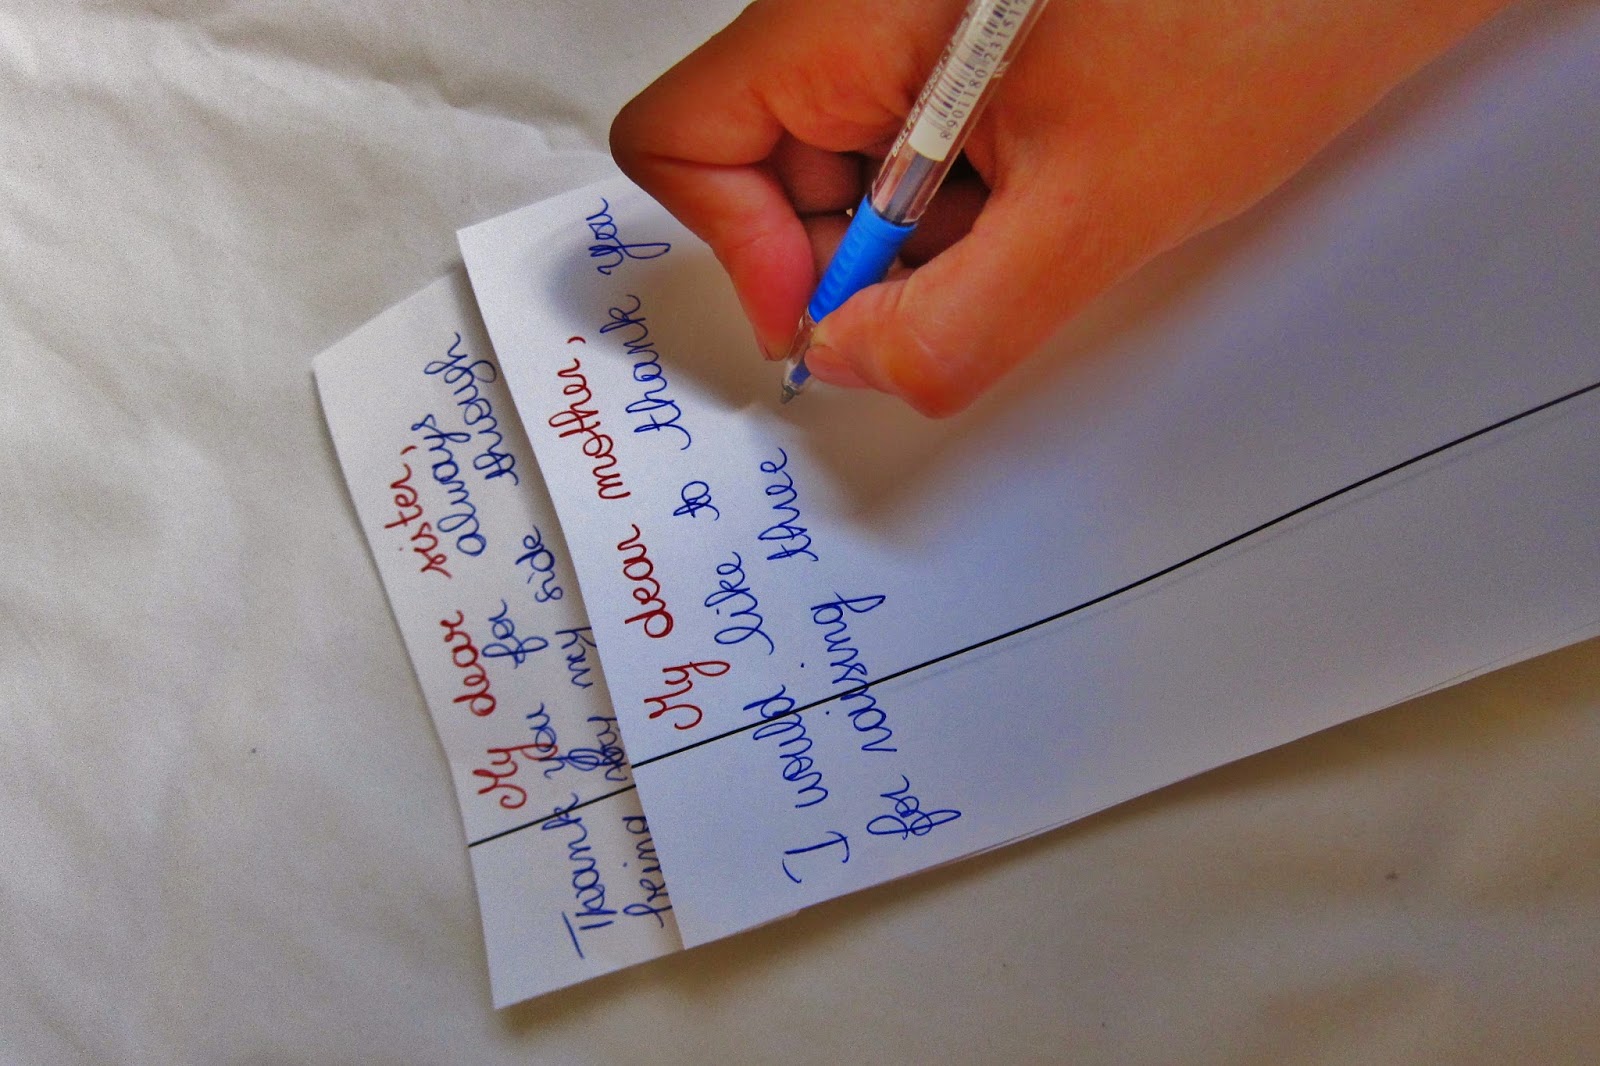 My dear sister,
Thank you for always
being by my side through
My dear mother,
I would like to thank you
for raising three
BALL PEN
8901180 231517